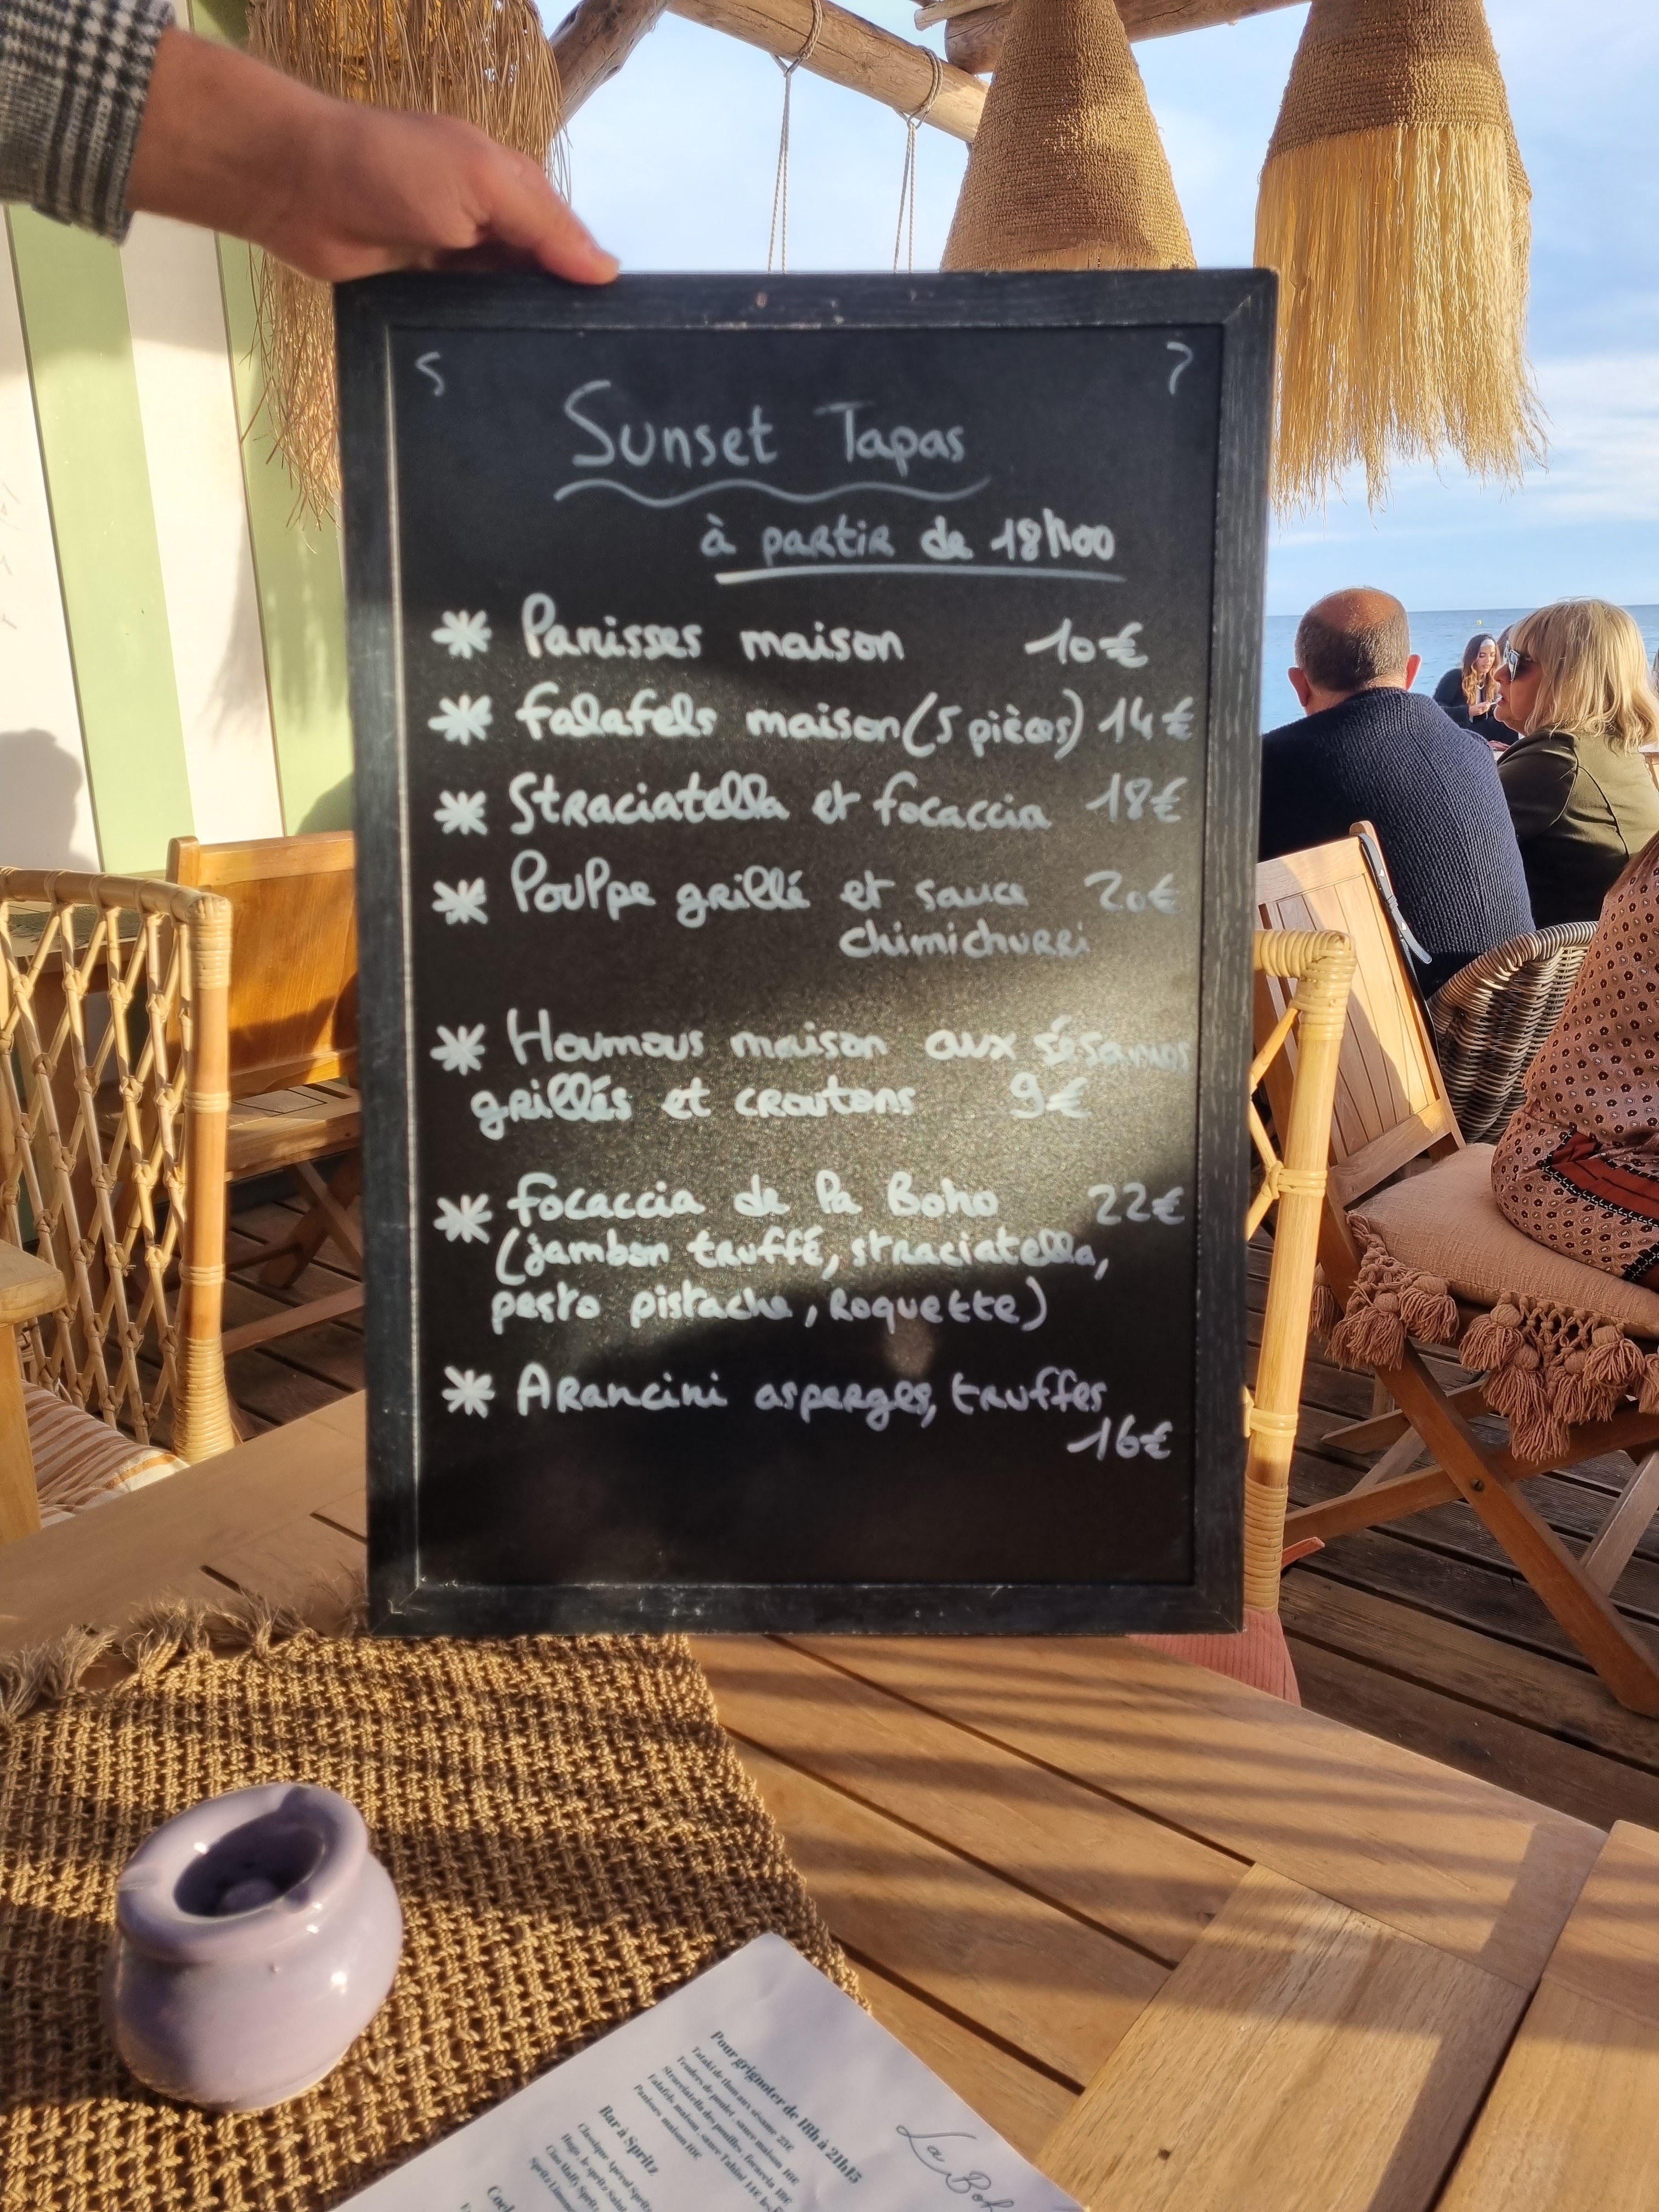 Sunset Tapas
à partir de 18h00
Panisses maison 10€
Falafels maison (5 pièces) 14€
Straciatella et focaccia 18€
Poulpe grillé et sauce 20€
chimichurri
Houmous maison aux sésames
grillés et croutons 9€
focaccia de la Boho 22€
(jambon truffé, straciatella,
pesto pistache, Roquette)
Arancini asperges, truffes
16€
La Boh
Pour grignoter de 18h à 21h15
Tataki de thon aux sésame 22€
Tenders de poulet, sauce maison 16€
Stracciatella des pouilles, focaccia 18€
Falafels maison, sauce Tahini 14€
Panisses maison 10€
Bar à Spritz
Classique Aperol Spritz
Hugo, le spritz
Spritz